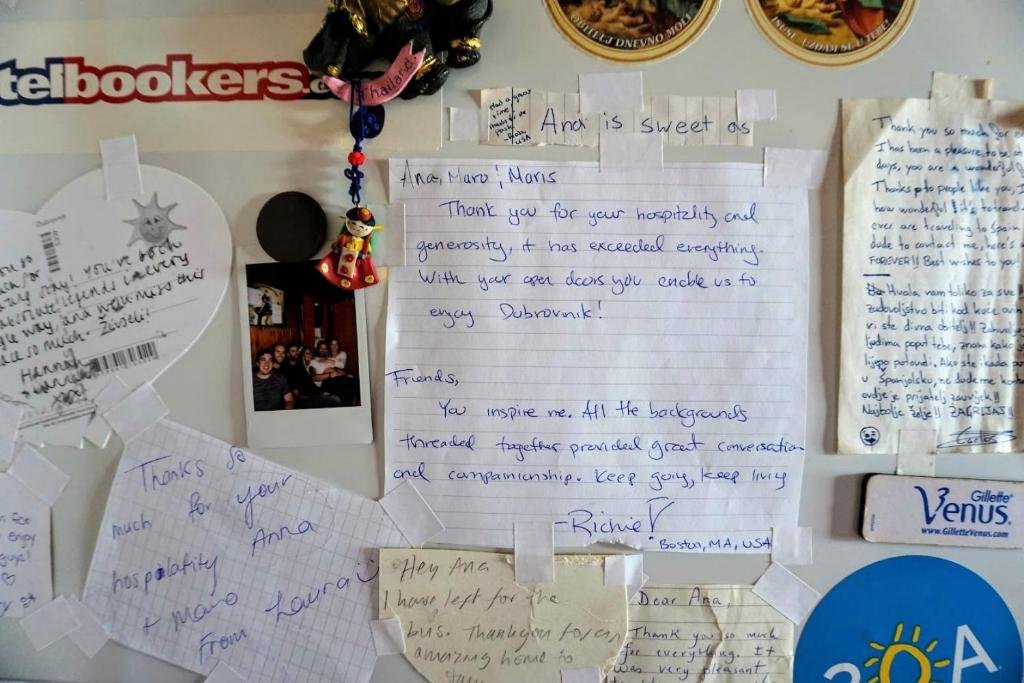 OBITELJ DNEVNO MOLI
ISUSE, UZDAM SE U TEBE!
telbookers.
Thailand
Had a great
time
USA
Ana is sweet as
Ana, Maro ; Maris
Thank you for your hospitality and
generosity, it has exceeded everything.
With your open doors you enable us to
enjoy Dubrovnik!
Friends,
You inspire me. All the backgrounds
threaded together provided great conversation
and companionship. Keep going, keep living
-Richie V
Boston, MA, USA
Thank you so much for
I has been a pleasure to be
days, you are a wonderful
Thanks to people like you, I
how wonderful it is to travel
ever are traveling to Spain
dude to contact me, here's
FOREVER!! Best wishes to you!
Hvala vam toliko za sve
zadovoljstvo biti kod kuće
vi ste divna obitelj!! Zahvalj
ljudima poput tebe, znam kako
lijepo putovati. Ako ste ikada
u Španjolsku, ne dude me
ovdje je prijatelj zauvijek!!
Najbolje želje!! ZAGRLJAJ!!
Carlos
stay! You've been
in every
way and will miss this
so much.
Hannah
Thanks so
much for your
hospolatity Anna
+ Maro
From Laura
for
enjoy
guys!
Hey Ana
I have left for the
bus. Thankyou for an
amazing home to
stay
Dear Ana,
Thank you so much
for everything. It
was very pleasant
Gillette
Venus
www.GilletteVenus.com
A